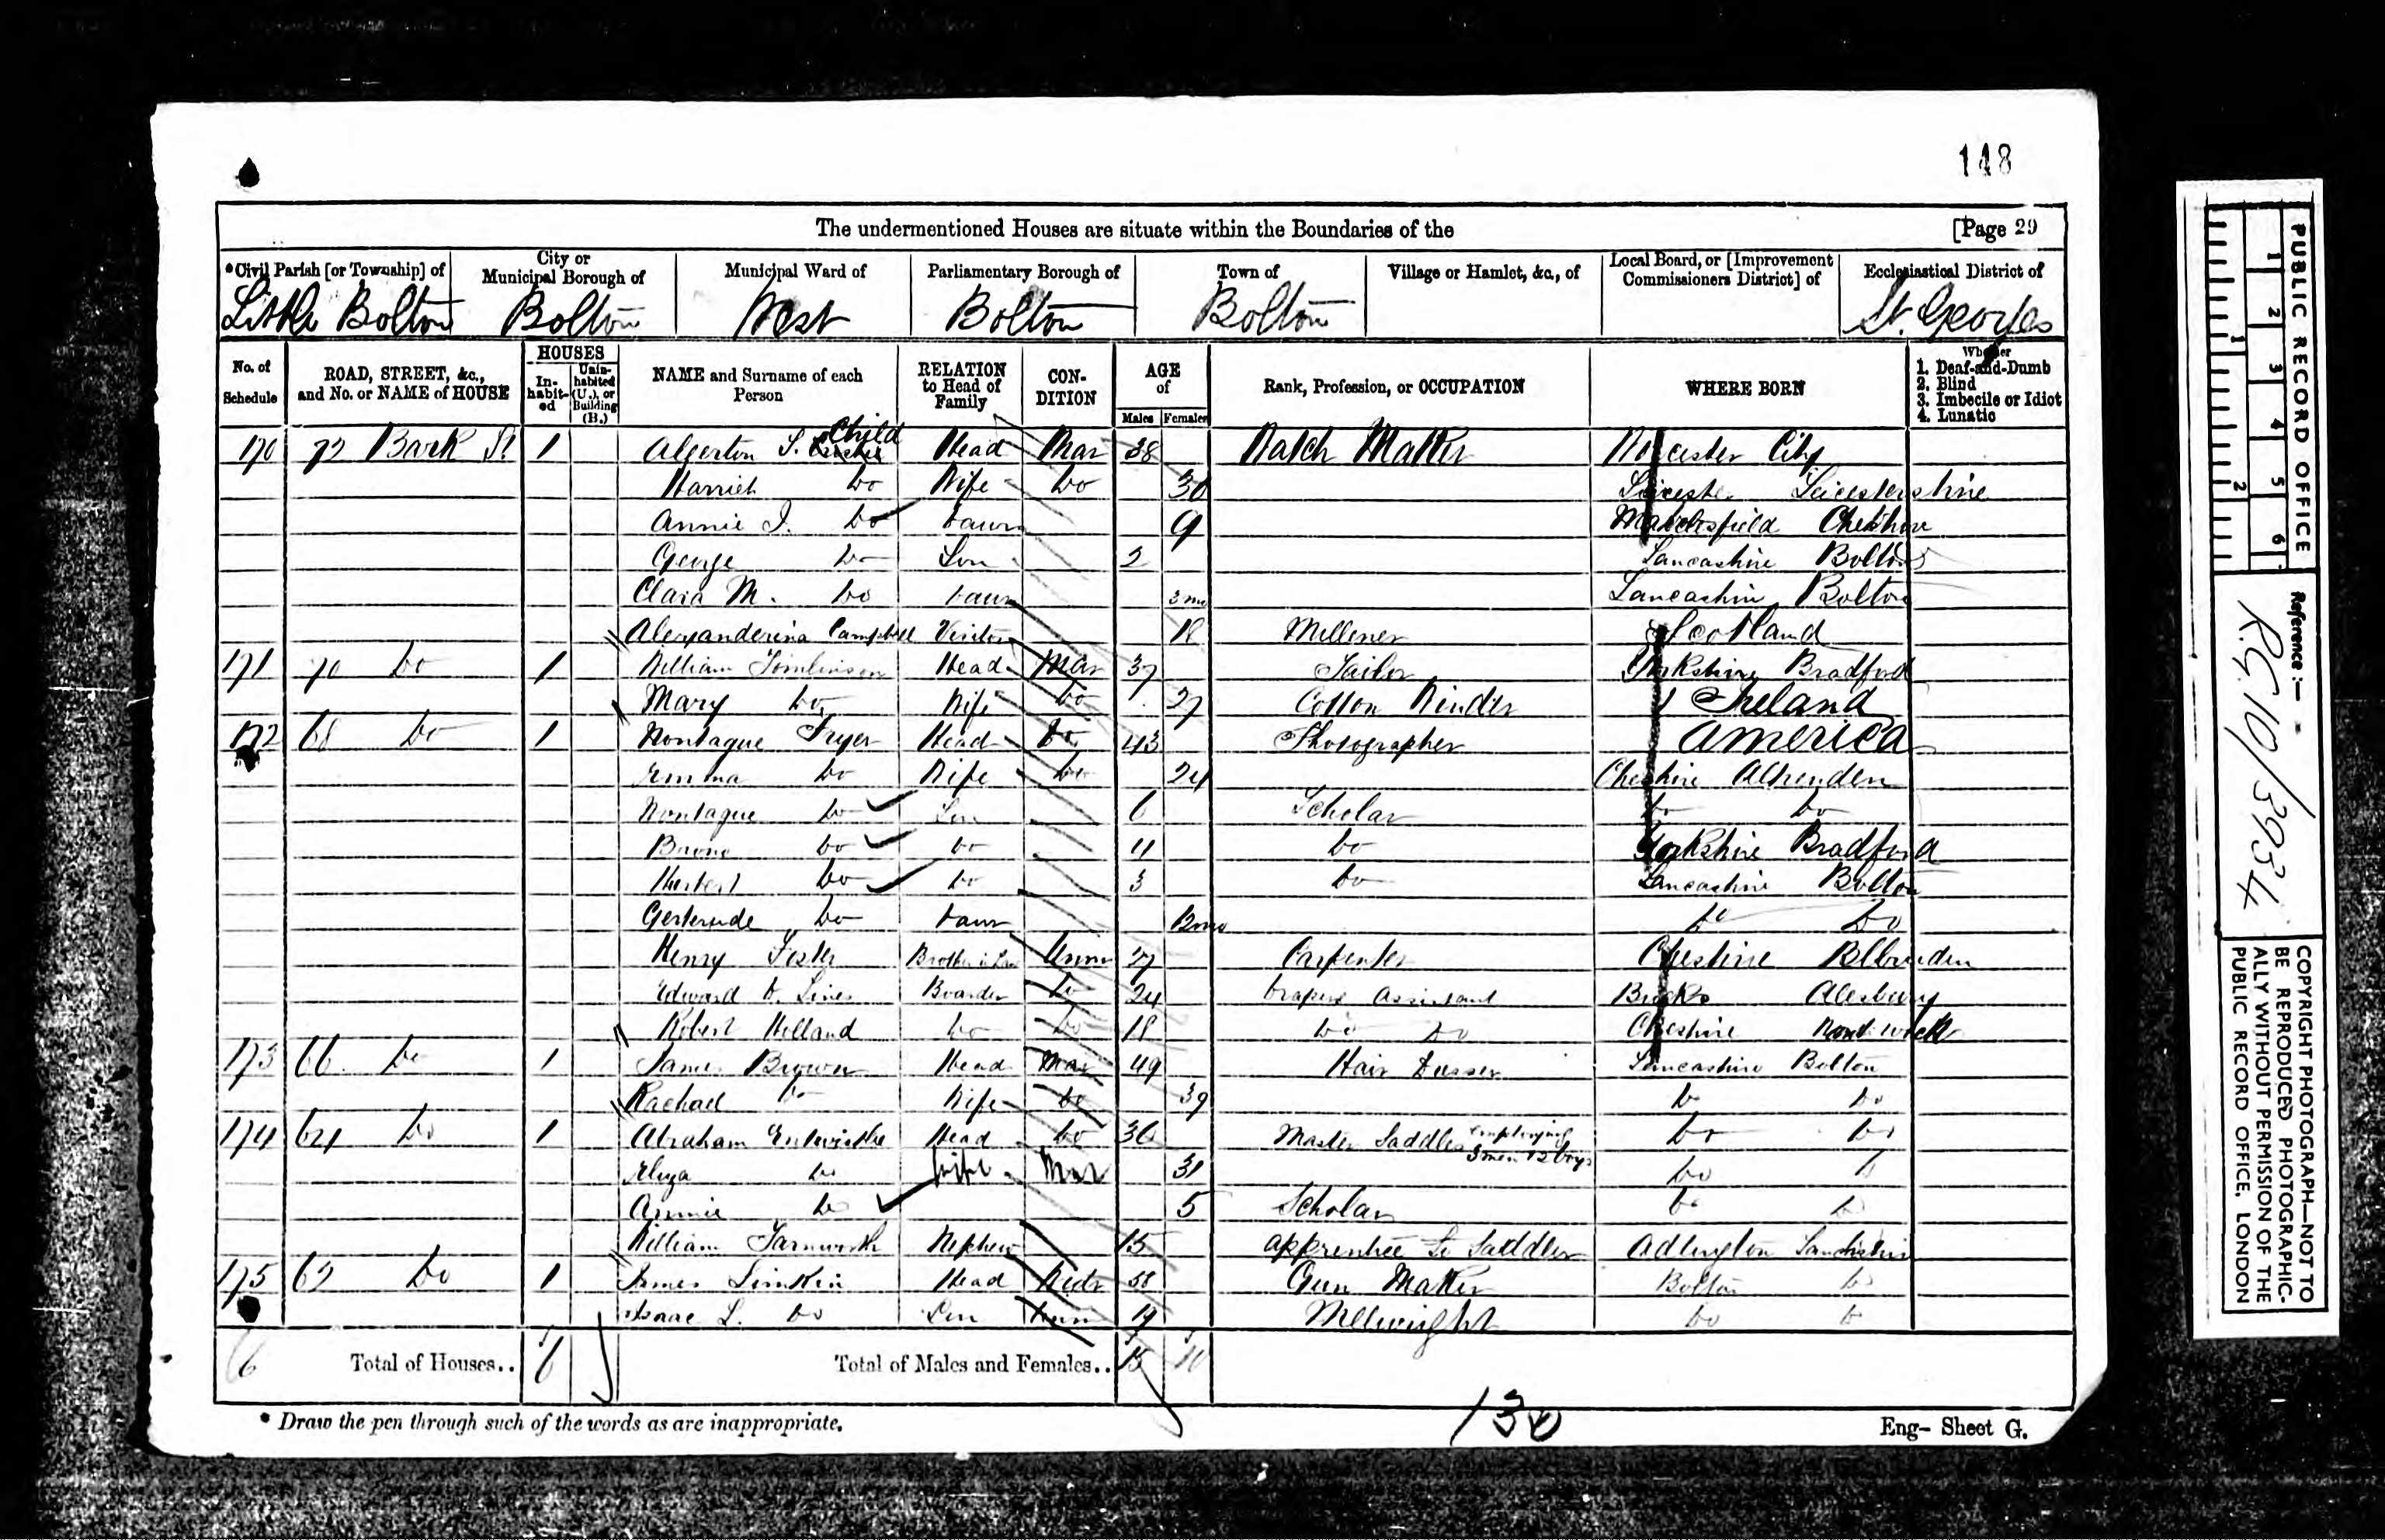 148
The undermentioned Houses are situate within the Boundaries of the [Page 29
*Civil Parish [or Township] of City or Municipal Borough of Municipal Ward of Parliamentary Borough of Town of Village or Hamlet, &c., of Local Board, or [Improvement Commissioners District] of Ecclesiastical District of
Little Bolton Bolton West Bolton Bolton St. Georges
No. of Schedule ROAD, STREET, &c., and No. or NAME of HOUSE HOUSES Inhabited Uninhabited (U.), or Building (B.) NAME and Surname of each Person RELATION to Head of Family CONDITION AGE of Males Females Rank, Profession, or OCCUPATION WHERE BORN Whether 1. Deaf-and-Dumb 2. Blind 3. Imbecile or Idiot 4. Lunatic
170 72 Bark St 1 Algerton S. Child Head Mar 38 Watch Maker Worcester City
Harriet Do Wife Do 30 Leicester Leicestershire
Annie I. Do Daur 9 Macclesfield Cheshire
George Do Son 2 Lancashire Bolton
Clara M. Do Daur 3 mo Lancashire Bolton
Alexanderina Campbell Visitor 18 Milliner Scotland
171 70 Do 1 William Tomlinson Head Mar 37 Tailor Yorkshire Bradford
Mary Do Wife Do 27 Cotton Winder Ireland
172 68 Do 1 Montague Fryer Head Do 43 Photographer America
Emma Do Wife Do 24 Cheshire
Montague Do Son 6 Scholar Do Do
Do Do 4 Do Yorkshire Bradford
Herbert Do Do 3 Do Lancashire Bolton
Gertrude Do Daur 12mo Do Do
Henry Brother in Law Unm 27 Carpenter Cheshire
Edward Boarder Do 24 Drapers Assistant Bucks Alesbury
Robert Holland Do Do 18 Do Do Cheshire
173 66 Do 1 James Brown Head Mar 49 Hair Dresser Lancashire Bolton
Rachael Do Wife Do 39 Do Do
174 64 Do 1 Abraham Entwistle Head Do 36 Master Saddler employing 3 men & 2 boys Do Do
Eliza Do Wife Mar 31 Do Do
Annie Do 5 Scholar Do Do
William Farnworth Nephew 15 apprentice to Saddler Adlington Lancashire
175 62 Do 1 James Simkin Head Widr 58 Gun Maker Bolton Do
Isaac L. Do Son Unm 19 Millwright Do Do
6 Total of Houses.. 6 Total of Males and Females.. 15 10
* Draw the pen through such of the words as are inappropriate.
130
Eng- Sheet G.
PUBLIC RECORD OFFICE
1 2 3 4 5 6
1 2
Reference:-
R.G. 10/3934
COPYRIGHT PHOTOGRAPH—NOT TO BE REPRODUCED PHOTOGRAPHIC-
ALLY WITHOUT PERMISSION OF THE
PUBLIC RECORD OFFICE, LONDON